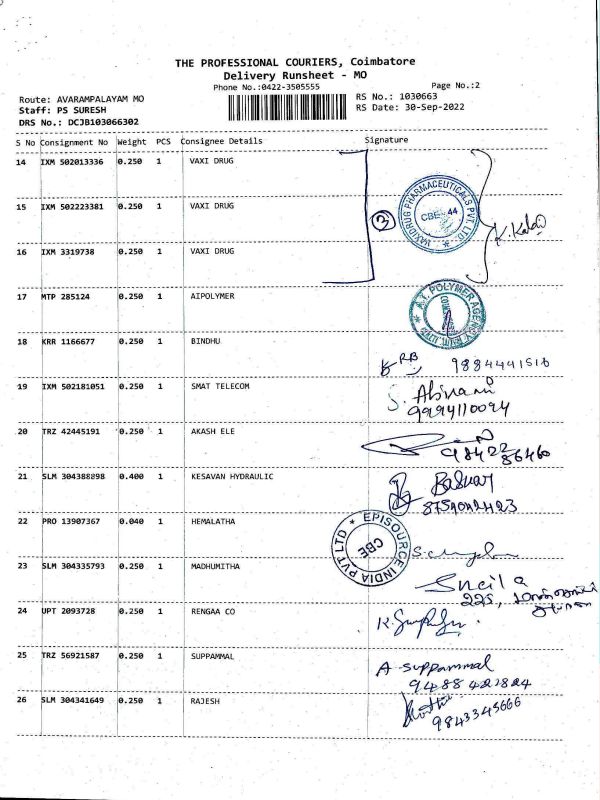 THE PROFESSIONAL COURIERS, Coimbatore
Delivery Runsheet - MO
Phone No.:0422-3505555
Page No.:2
Route: AVARAMPALAYAM MO
RS No.: 1030663
Staff: PS SURESH
RS Date: 30-Sep-2022
DRS No.: DCJB103066302
S No Consignment No Weight PCS Consignee Details Signature
14 IXM 502013336 0.250 1 VAXI DRUG
15 IXM 502223381 0.250 1 VAXI DRUG
3
MAXIDRUG PHARMACEUTICALS PVT. LTD.
CBE-44
16 IXM 3319738 0.250 1 VAXI DRUG
17 MTP 285124 0.250 1 AIPOLYMER
A.T. POLYMER AGENCY
18 KRR 1166677 0.250 1 BINDHU
RB 9884441516
19 IXM 502181051 0.250 1 SMAT TELECOM
S. Abinami
9994110094
20 TRZ 42445191 0.250 1 AKASH ELE
98422
86460
21 SLM 304388898 0.400 1 KESAVAN HYDRAULIC
22 PRO 13907367 0.040 1 HEMALATHA
EPISOURCE INDIA PVT LTD
CBE
23 SLM 304335793 0.250 1 MADHUMITHA
Sheila
225,
24 UPT 2093728 0.250 1 RENGAA CO
25 TRZ 56921587 0.250 1 SUPPAMMAL
A suppammal
9488421824
26 SLM 304341649 0.250 1 RAJESH
9843345666